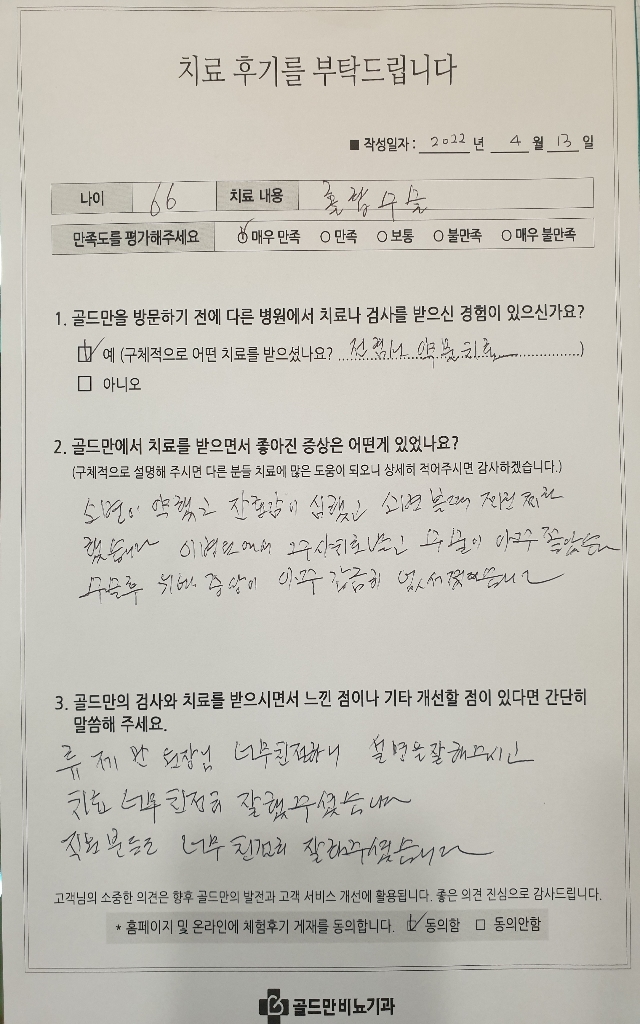 치료 후기를 부탁드립니다
■ 작성일자 : 2022 년 4 월 13 일
나이 66 치료 내용 홀렙수술
만족도를 평가해주세요 매우 만족 만족 보통 불만족 매우 불만족
1. 골드만을 방문하기 전에 다른 병원에서 치료나 검사를 받으신 경험이 있으신가요?
예 (구체적으로 어떤 치료를 받으셨나요? 전립선 약물치료)
아니오
2. 골드만에서 치료를 받으면서 좋아진 증상은 어떤게 있었나요?
(구체적으로 설명해 주시면 다른 분들 치료에 많은 도움이 되오니 상세히 적어주시면 감사하겠습니다.)
소변이 약했고 잔뇨감이 심했고 소변 볼때
했습니다 이병원에서 치료받고 수술이 아주
수술후 위에 증상이 아주 말끔히 없어졌습니다
3. 골드만의 검사와 치료를 받으시면서 느낀 점이나 기타 개선할 점이 있다면 간단히
말씀해 주세요.
류제만 원장님 너무친절하니 설명을잘해주시고
치료 너무친절히 잘했주셨습니다
직원분들도 너무 친절히 잘해주셨습니다
고객님의 소중한 의견은 향후 골드만의 발전과 고객 서비스 개선에 활용됩니다. 좋은 의견 진심으로 감사드립니다.
* 홈페이지 및 온라인에 체험후기 게재를 동의합니다. 동의함 동의안함
골드만비뇨기과